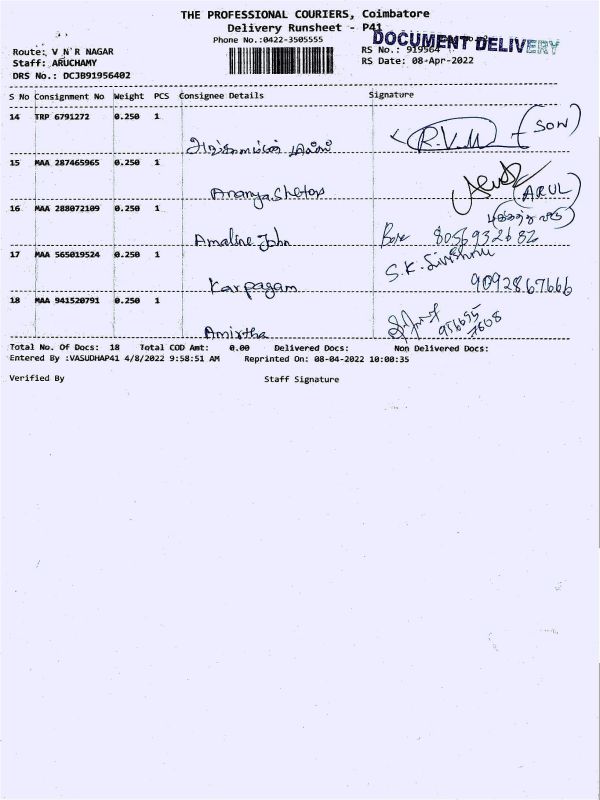 THE PROFESSIONAL COURIERS, Coimbatore
Delivery Runsheet - P41
DOCUMENT DELIVERY
Phone No.:0422-3505555
Route: V N R NAGAR
RS No.: 919564
Staff: ARUCHAMY
RS Date: 08-Apr-2022
DRS No.: DCJB91956402
S No Consignment No Weight PCS Consignee Details Signature
14 TRP 6791272 0.250 1
R.V.M (SON)
15 MAA 287465965 0.250 1
Ananya Shetos
(ARUL)
16 MAA 288072109 0.250 1
Amaline John 8056932682
17 MAA 565019524 0.250 1
Karpagam 9092867666
18 MAA 941520791 0.250 1
Amirtha
Total No. Of Docs: 18 Total COD Amt: 0.00 Delivered Docs: Non Delivered Docs:
Entered By :VASUDHAP41 4/8/2022 9:58:51 AM Reprinted On: 08-04-2022 10:00:35
Verified By Staff Signature